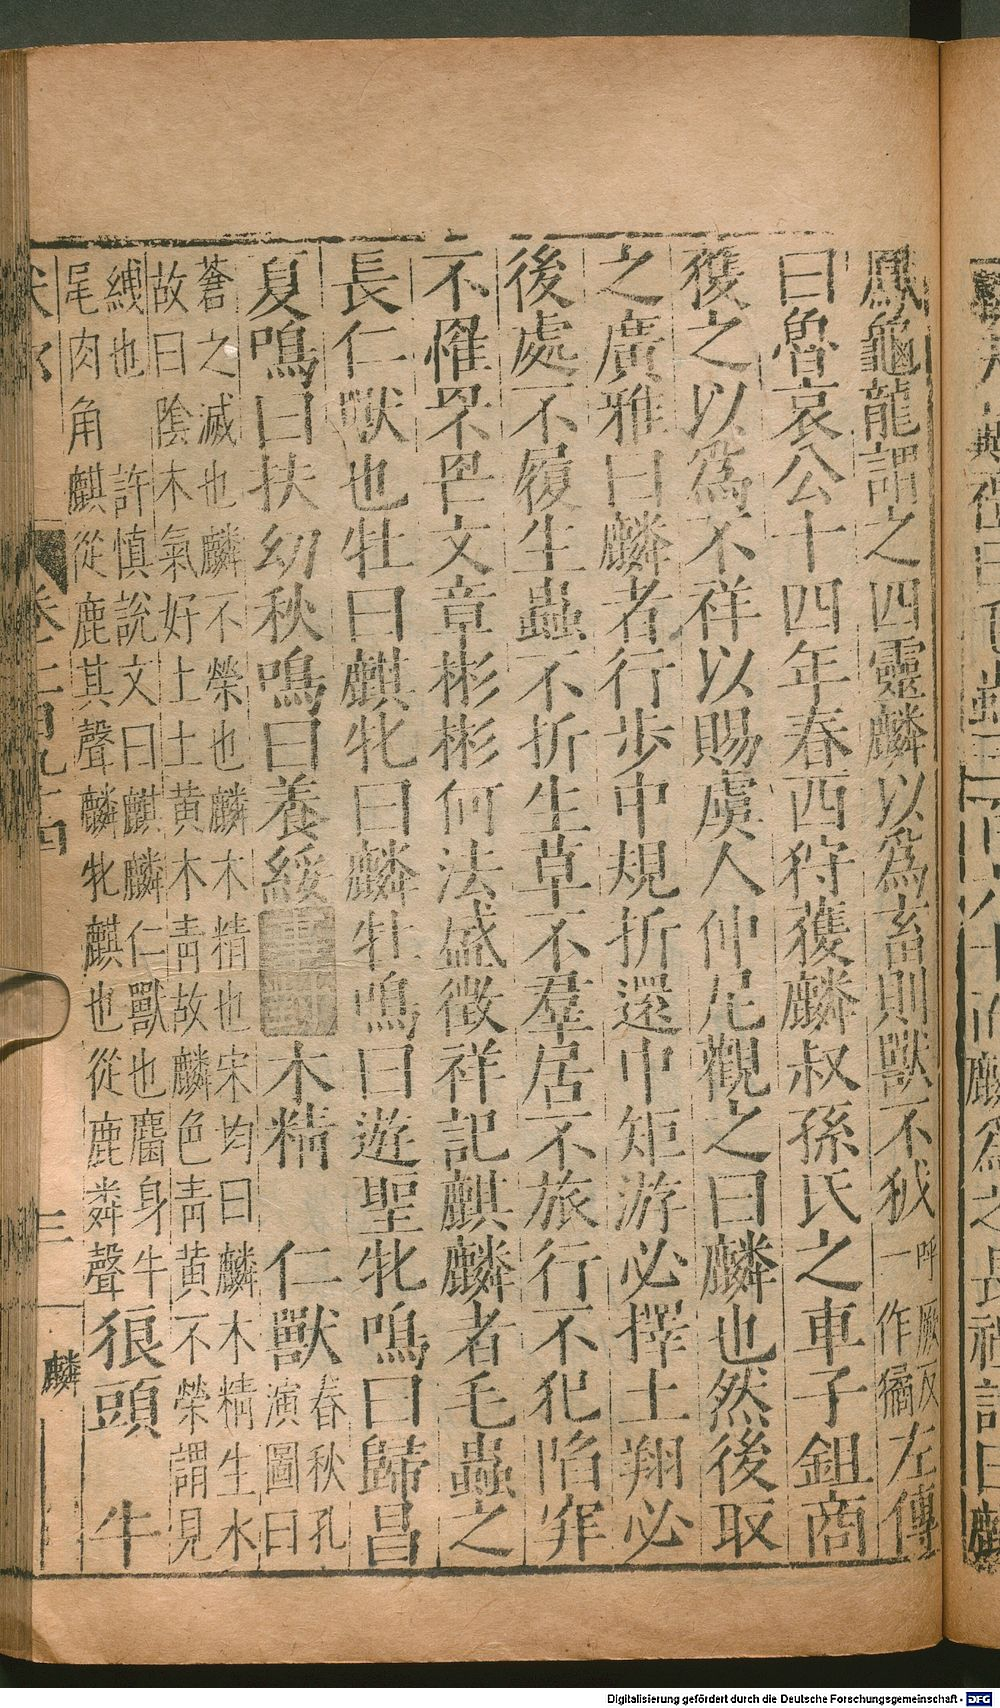 鳳龜龍謂之四靈麟以爲畜則獸不狘呼厥反一作獝左傳
曰魯哀公十四年春西狩獲麟叔孫氏之車子鉏商
獲之以爲不祥以賜虞人仲尼觀之曰麟也然後取
之廣雅曰麟者行步中規折還中矩游必擇土翔必
後處不履生蟲不折生草不羣居不旅行不犯陷穽
不罹罘罔文章彬彬何法盛徵祥記麒麟者毛蟲之
長仁獸也牡曰麒牝曰麟牡鳴曰遊聖牝鳴曰歸昌
夏鳴曰扶幼秋鳴曰養綏事對木精 仁獸春秋孔演圖曰
蒼之滅也麟不榮也麟木精也宋均曰麟木精生水
故曰陰木氣好土土黃木靑故麟色靑黃不榮謂見
縛也 許慎說文曰麒麟仁獸也麕身牛
尾肉角麒從鹿其聲麟牝麒也從鹿粦聲狼頭 牛
卷二十九
三
麟
Digitalisierung gefördert durch die Deutsche Forschungsgemeinschaft - DFG